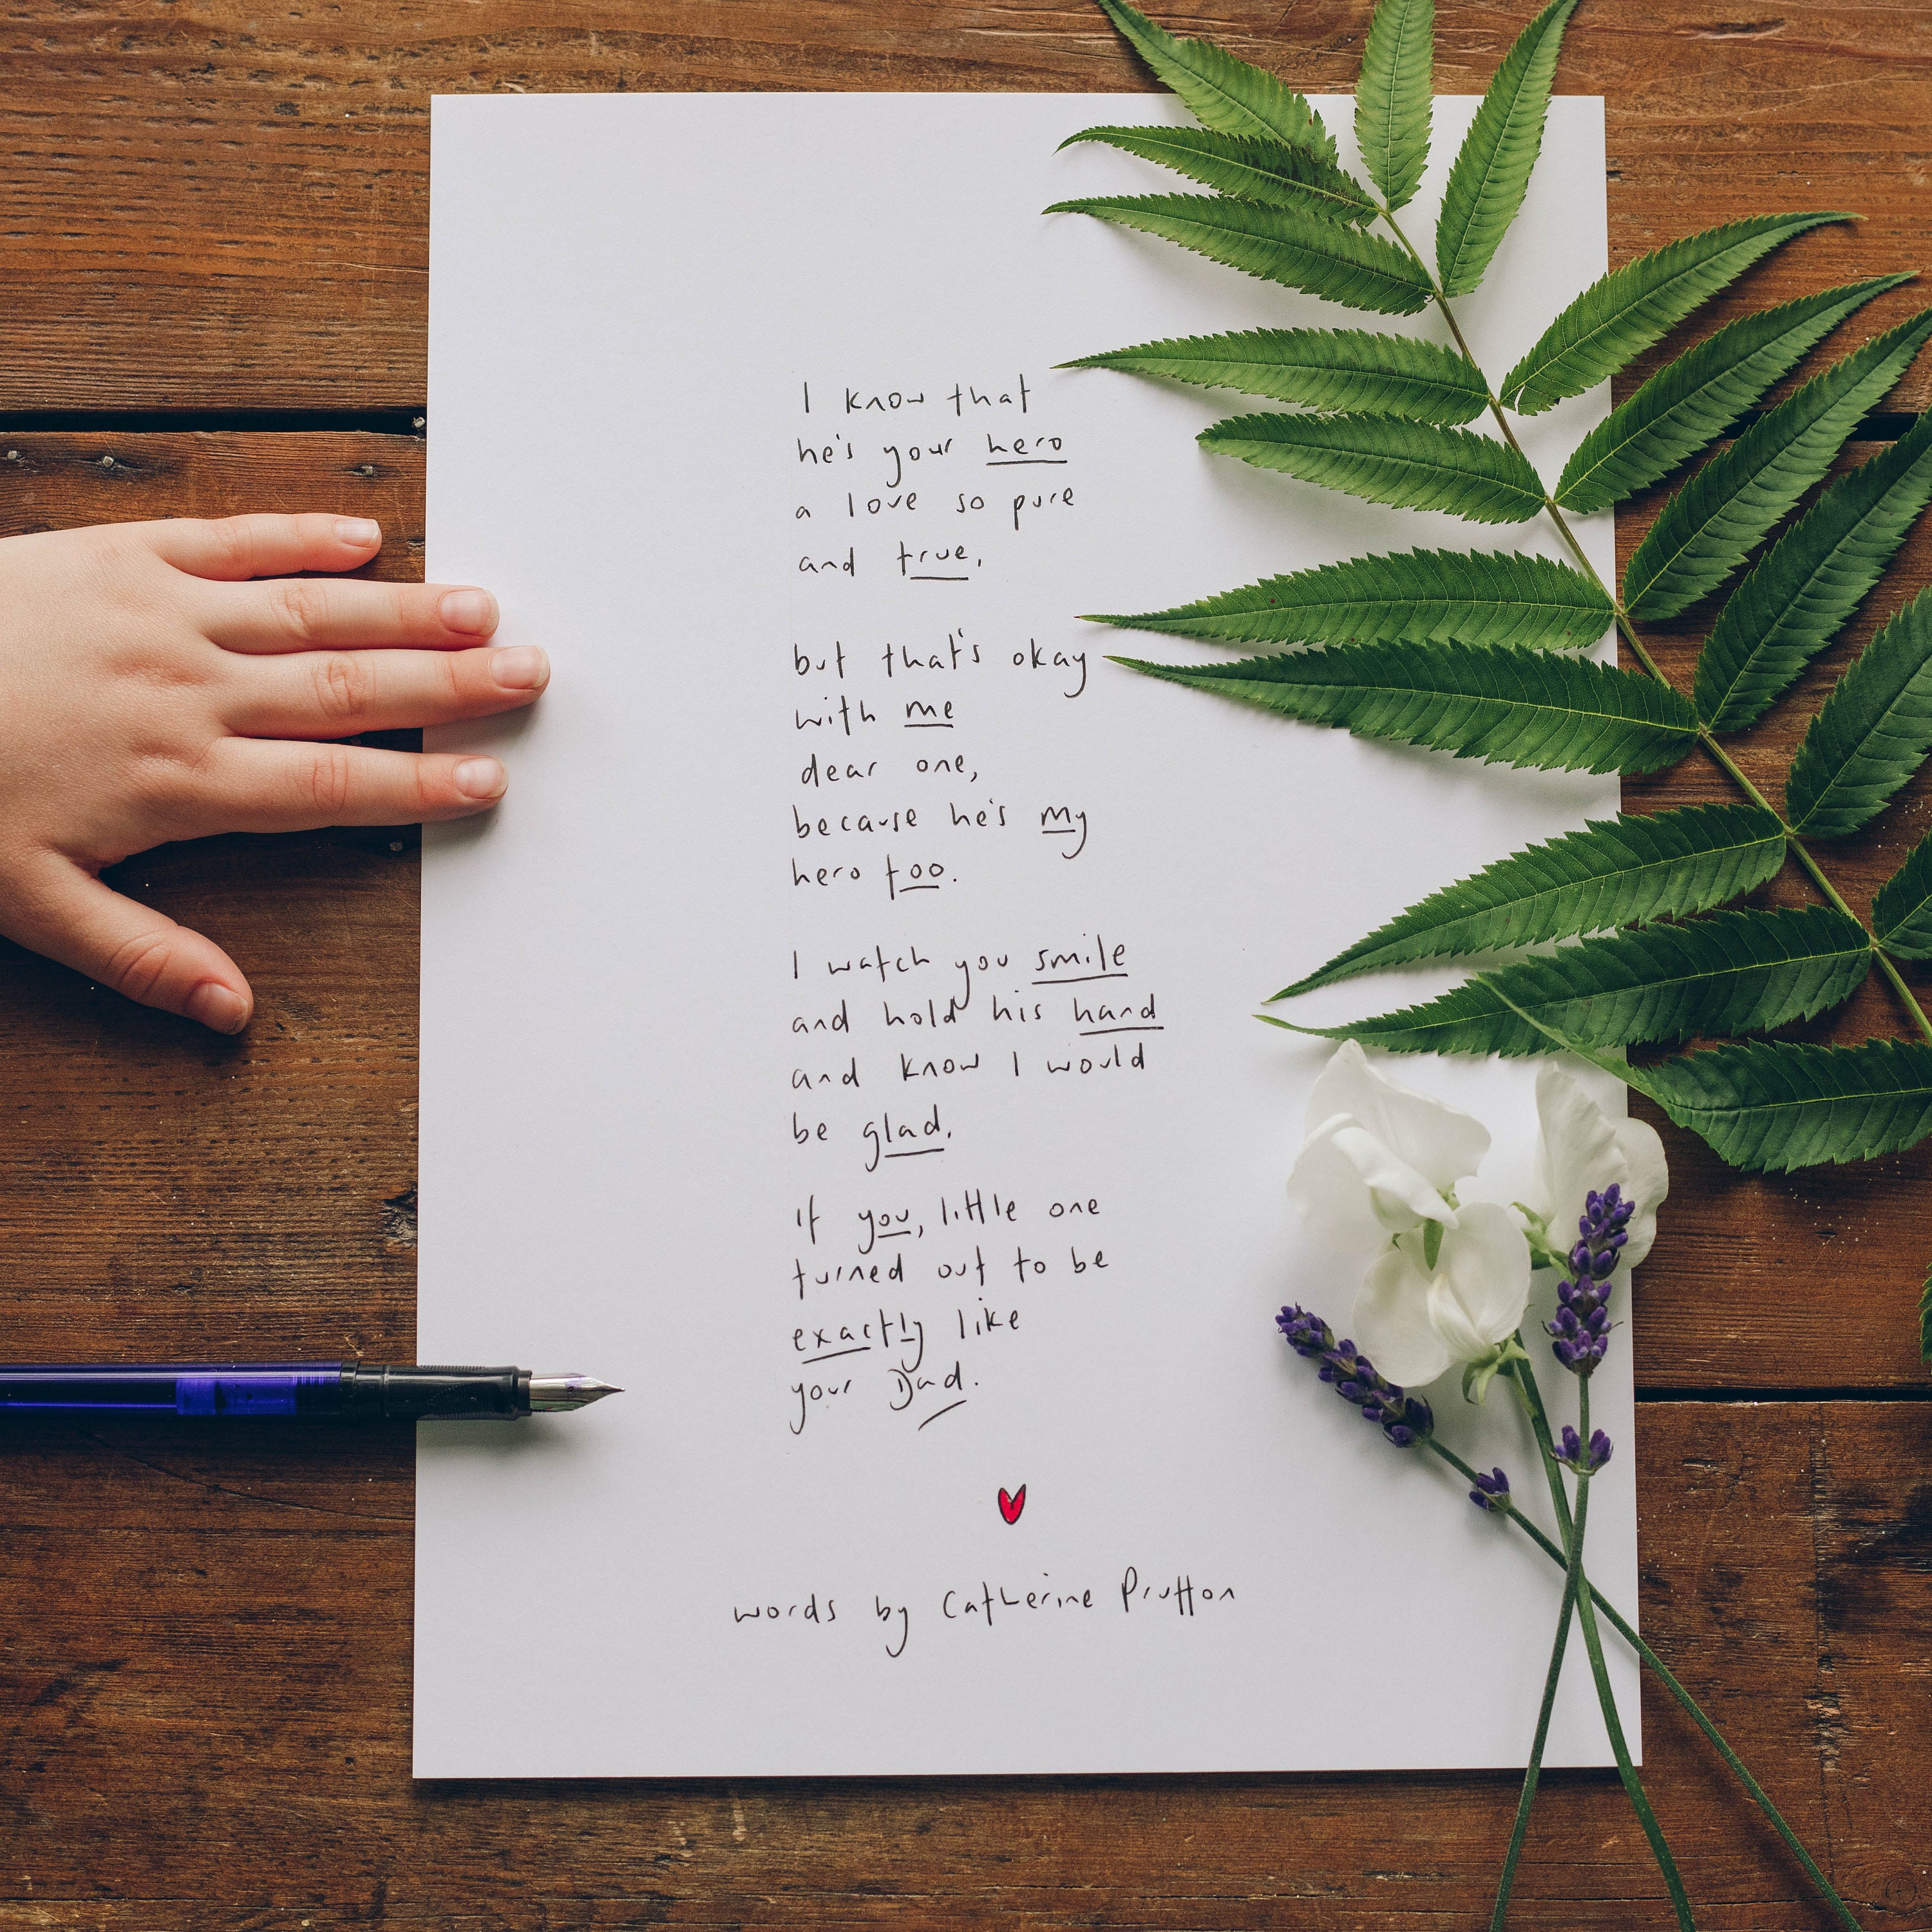 I know that
he's your hero
a love so pure
and true,
but that's okay
with me
dear one,
because he's my
hero too.
I watch you smile
and hold his hand
and know I would
be glad,
If you, little one
turned out to be
exactly like
your Dad.
words by Catherine Prutton